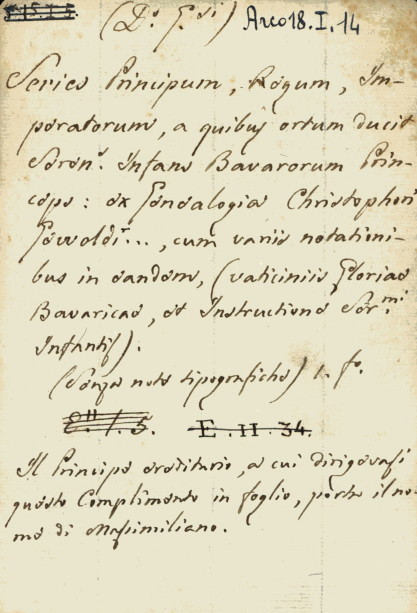 (D.º G.si) Arco 18. I. 14
Series Principum, Regum, Im-
peratorum, a quibus ortum ducit
Seren.s Infans Bavarorum Prin-
ceps: ex Genealogia Christophori
Gewoldi..., cum variis notationi-
bus in eandem, (vaticiniis Gloriae
Bavaricae, et Instructione Ser.mi
Infantis).
(Senza note tipografiche) 1. fo.
E. II. 34.
Il Principe ereditario, a cui dirigevasi
questo Complimento in foglio, porta il no-
me di Massimiliano.